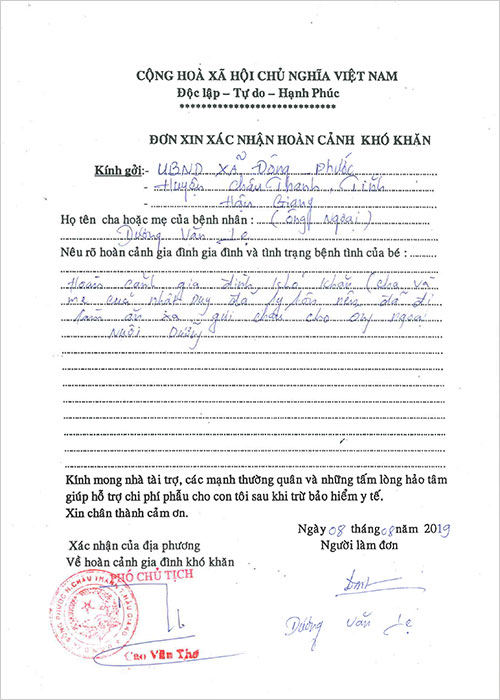 CỘNG HOÀ XÃ HỘI CHỦ NGHĨA VIỆT NAM
Độc lập – Tự do – Hạnh Phúc
******************************
ĐƠN XIN XÁC NHẬN HOÀN CẢNH KHÓ KHĂN
Kính gởi:- UBND XÃ Đông Phước
- Huyện Châu Thành, Tỉnh
- Hậu Giang
Họ tên cha hoặc mẹ của bệnh nhân : (ông ngoại)
Dương Văn Lẹ
Nêu rõ hoàn cảnh gia đình gia đình và tình trạng bệnh tình của bé : ..........
Hoàn cảnh gia đình khó khăn (cha và
mẹ của nhật Duy đã ly hôn nên đã đi
làm ăn xa gửi cháu cho ông ngoại
nuôi dưỡng
Kính mong nhà tài trợ, các mạnh thường quân và những tấm lòng hảo tâm
giúp hỗ trợ chi phí phẫu cho con tôi sau khi trừ bảo hiểm y tế.
Xin chân thành cảm ơn.
Ngày 08 tháng 08 năm 2019
Xác nhận của địa phương
Người làm đơn
Về hoàn cảnh gia đình khó khăn
PHÓ CHỦ TỊCH
Dương Văn Lẹ
Cao Văn Thơ